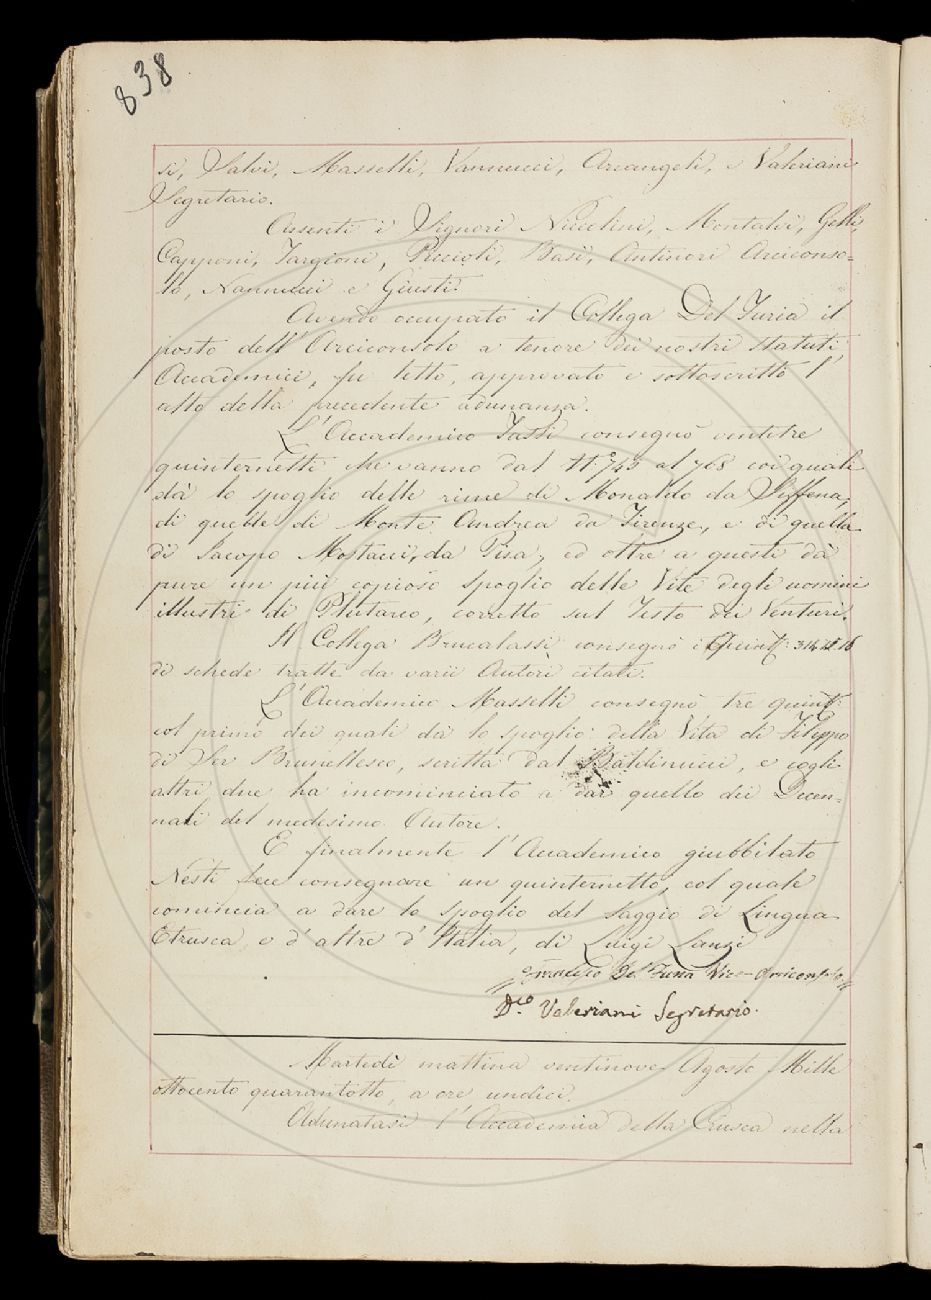 838
si, Salvi, Masselli, Vannucci, Arcangeli, e Valeriani
Segretario.
Assenti i Signori Niccolini, Montalvi, Gelli,
Capponi, Targioni, Puccioti, Basi, Antinori Arciconso=
lo, Nannucci e Giusti.
Avendo occupato il Collega Del Furia il
posto dell'Arciconsolo a tenore dei nostri statuti
Accademici, fu letto, approvato e sottoscritto l'
atto della precedente adunanza.
L'Accademico Tassi consegnò ventitre
quinternetti che vanno dal N.° 745 al 768 coi quali
dà lo spoglio delle rime di Monaldo da Soffena,
di quelle di Monte Andrea da Firenze, e di quelle
di Iacopo Mostacci, da Pisa, ed oltre a questi dà
pure un più copioso spoglio delle Vite degli uomini
illustri di Plutarco, corretto sul Testo dei Venturi.
Il Collega Brucalassi consegnò i Quint.
di schede tratte da varii Autori citati.
L'Accademico Masselli consegnò tre quint.
col primo dei quali dà lo spoglio della Vita di Filippo
di Ser Brunellesco, scritta dal Baldinucci, e cogli
altri due ha incominciato a dar quello dei Decen=
nali del medesimo Autore.
E finalmente l'Accademico giubbilato
Nesti fece consegnare un quinternetto, col quale
comincia a dare lo spoglio del saggio di Lingua
Etrusca e d'altre d'Italia, di Luigi Lanzi
Francesco Del Furia Vice-Arciconsolo
D.co Valeriani Segretario.
Martedì mattina ventinove Agosto Mille
ottocento quarantotto, a ore undici.
Adunatasi l'Accademia della Crusca nella